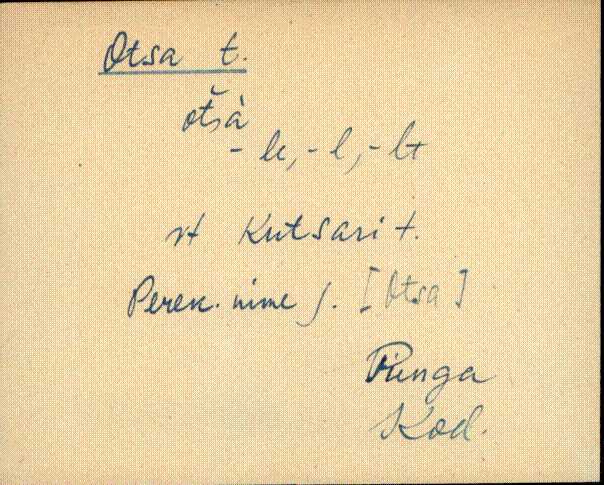 Otsa t.
ot̆sà
- le, - l, - lt
vt Kutsari t.
Peren. nime j. [Otsa]
Punga
Kod.